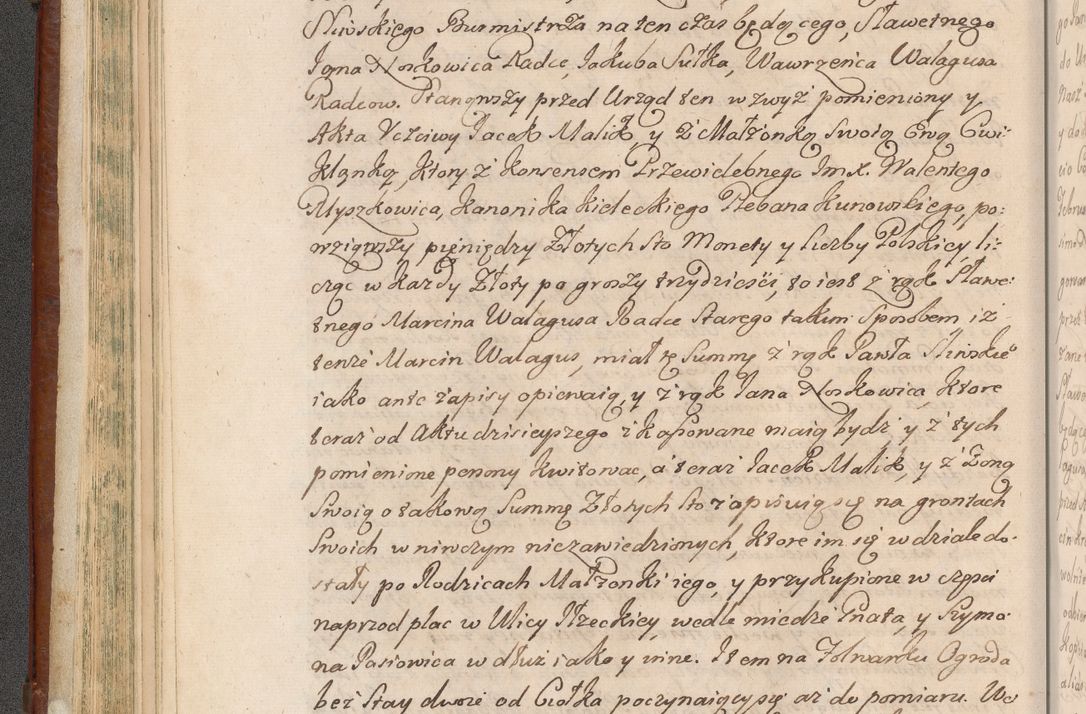 Sliwskiego Burmistrza na ten czas będącego, Sławetnego
Jgna Noskowica Radce, Jakuba Sułka, Wawrzeńca Walagusa
Radcow. Stanąwszy przed Urząd ten w zwyż pomieniony y
Akta Uczciwy Jacek Malik y z Małżonką Swoią Ewą Cwi-
klanką, Ktory z Konsensem Przewielebnego Jmx. Walentego
Myszkowica, Kanonika Kieleckiego Plebana Kunowskiego, po:
wziąwszy pięniędzy Złotych Sto Monety y Liczby Polskiey li-
cząc w każdy Złoty po groszy trzydzieści, to iest z rąk Sławe:
tnego Marcina Walagusa Radce Starego takim Sposobem iż
tenże Marcin Walagus, miał tę Summę z rąk Pawła Sliwskie°
iako ante zapisy opiewaią, y z rąk Jana Noskowica Ktore
teraz od Aktu dzisieyszego zkassowane maią bydź y z tych
pomienione persony kwitować, á teraz Jacek Malik, y z Zoną
Swoią o takową Summę Złotych Sto zapisuią się na grontach
Swoich w niwczym niezawiedzionych, Ktore im się w dziale do-
stały po Rodzicach Małżonki iego, y przykupione w części
naprzod plac w Ulicy Iłzeckiey wedle miedze Gnata, y Szymo-
na Pasiowica w dłuż iako y inne. Item na Folwarku Ogroda
bez Stay dwoie od Ciołka poczynaiący się aż do pomiaru. We